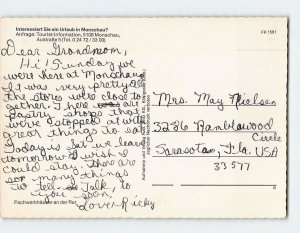 Interessiert Sie ein Urlaub in Monschau?
Anfrage: Tourist-Information, 5108 Monschau,
Austraße 5 (Tel. 0 24 72 / 33 00)
FK 1561
Dear Grandmom,
Hi! Sunday we
were here at Monschau
It was very pretty all
the stores were close to
gether. There are
pastry shops that
we've stopped at with
great things to eat.
Today is Sat we leave
tomorrow I wish I
could stay. There are
so many things
to tell. Talk to
you soon,
Love Ricky
Fachwerkhäuser an der Rur
Mrs. May Nielsen
3286 Ramblewood
Circle
Sarasota, Fla. USA
33577